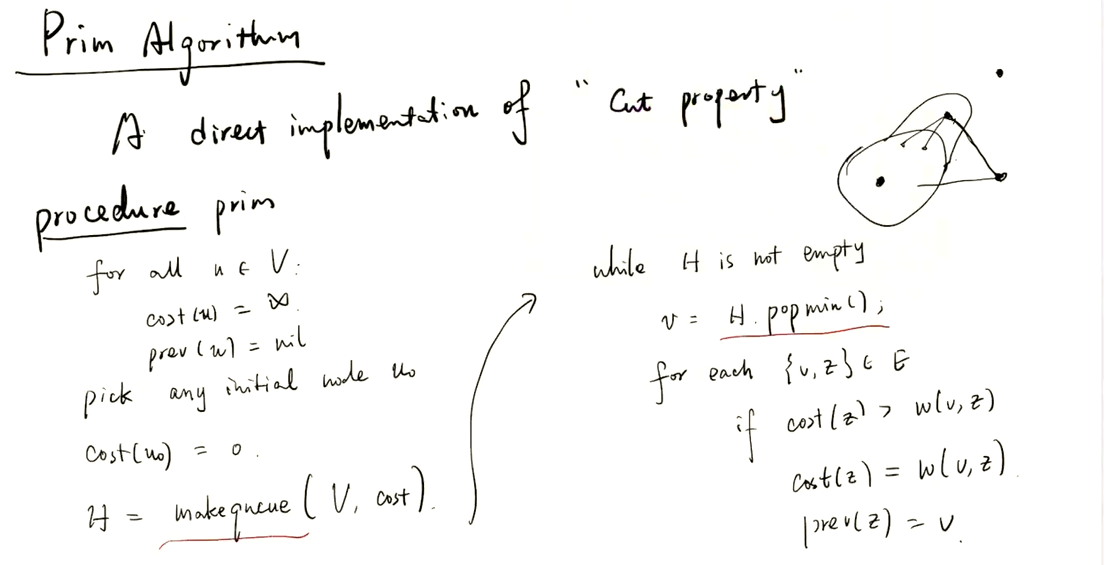 Prim Algorithm
A direct implementation of "Cut property"
procedure prim
for all u ∈ V:
cost(u) = ∞.
prev(u) = nil
pick any initial node u₀
cost(u₀) = 0.
H = makequeue (V, cost).
while H is not empty
v = H.popmin();
for each {v,z} ∈ E
if cost(z) > w(v,z)
cost(z) = w(v,z).
prev(z) = v.